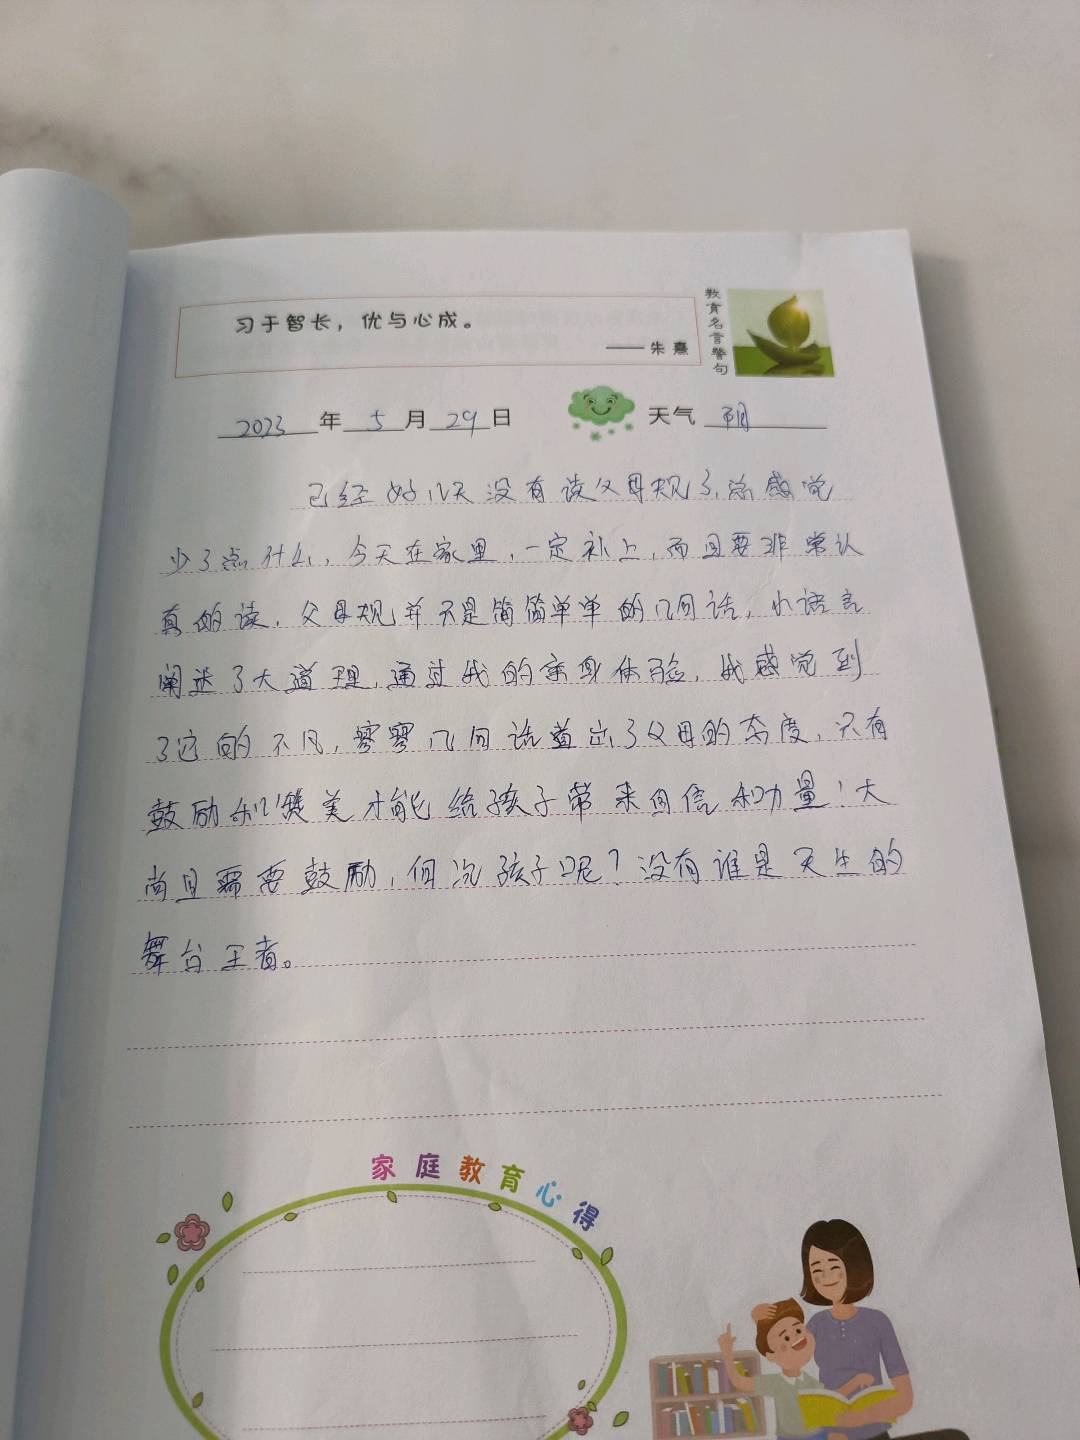 习于智长，优与心成。
——朱熹
教育名言警句
2023年5月29日 天气 阴
已经好几天没有读父母规了,总感觉
少了点什么,今天在家里,一定补上,而且要非常认
真的读,父母规并不是简简单单的几句话,小语言
阐述了大道理,通过我的亲身体验,我感觉到
了它的不凡,寥寥几句话道出了父母的态度,只有
鼓励和赞美才能给孩子带来自信和力量!大
尚且需要鼓励,何况孩子呢?没有谁是天生的
舞台王者。
家庭教育心得